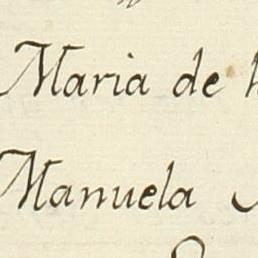 Maria de
Manuela